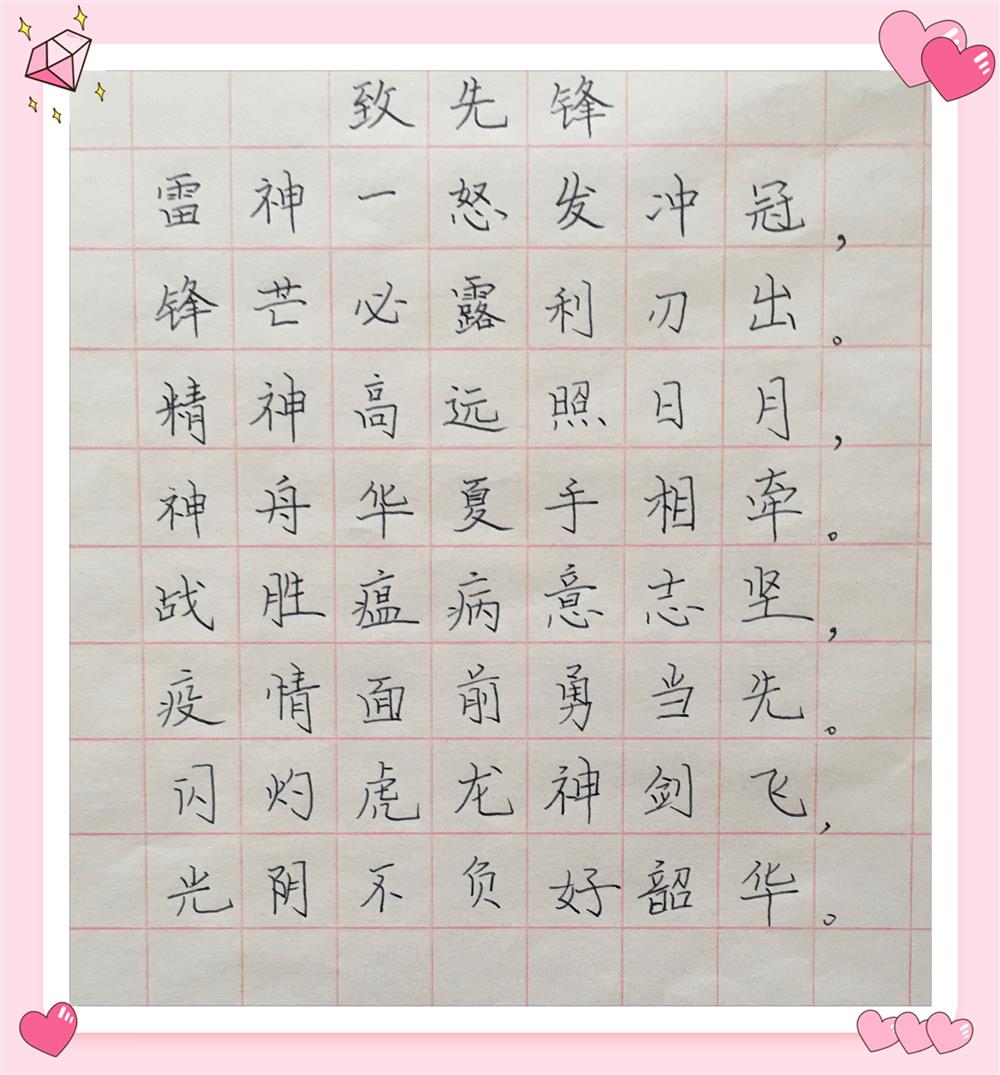 致先锋
雷神一怒发冲冠，
锋芒必露利刃出。
精神高远照日月，
神舟华夏手相牵。
战胜瘟病意志坚，
疫情面前勇当先。
闪灼虎龙神剑飞，
光阴不负好韶华。